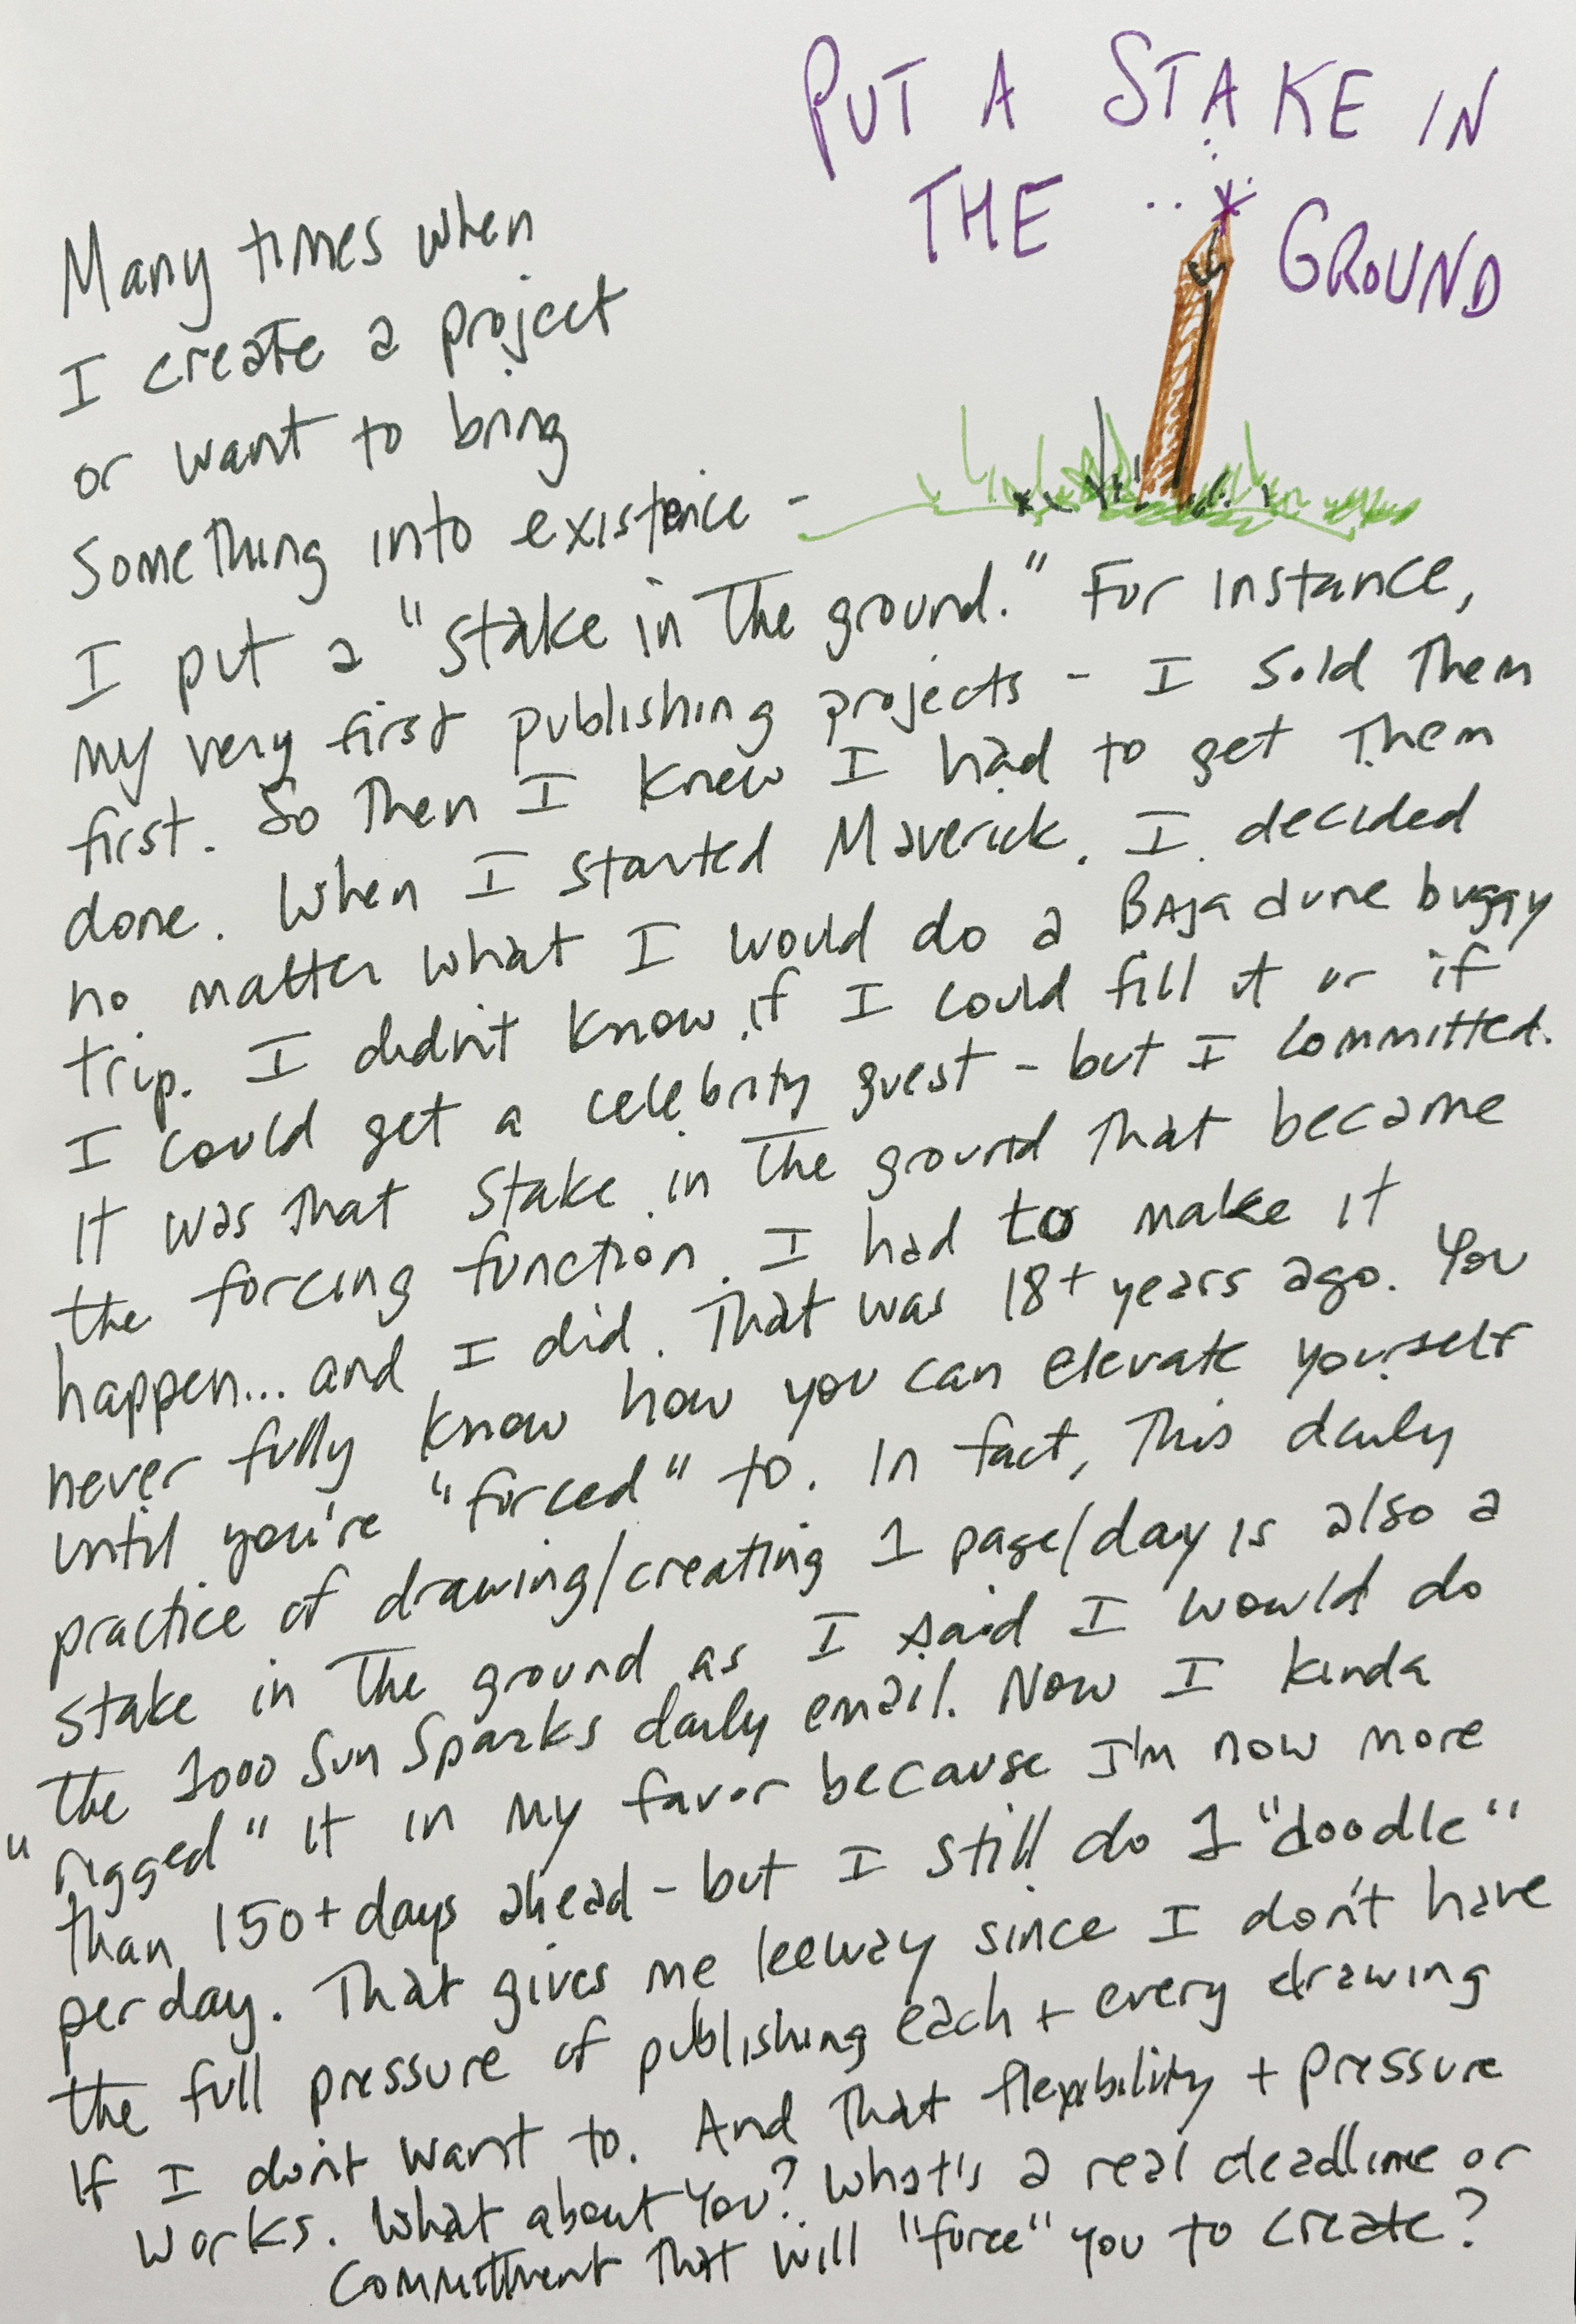 PUT A STAKE IN
THE GROUND
Many times when
I create a project
or want to bring
something into existence -
I put a "stake in the ground." For instance,
my very first publishing projects - I sold them
first. So then I knew I had to get them
done. When I started Maverick. I decided
no matter what I would do a Baja dune buggy
trip. I didn't know if I could fill it or if
I could get a celebrity guest - but I committed.
It was that stake in the ground that became
the forcing function. I had to make it
happen... and I did. That was 18+ years ago. You
never fully know how you can elevate yourself
until you're "forced" to. In fact, this daily
practice of drawing/creating 1 page/day is also a
stake in the ground as I said I would do
the 1000 Sun Sparks daily email. Now I kinda
"rigged" it in my favor because I'm now more
than 150+ days ahead - but I still do 1 "doodle"
per day. That gives me leeway since I don't have
the full pressure of publishing each + every drawing
If I don't want to. And that flexibility + pressure
works. What about You? What's a real deadline or
committment that will "force" you to create?